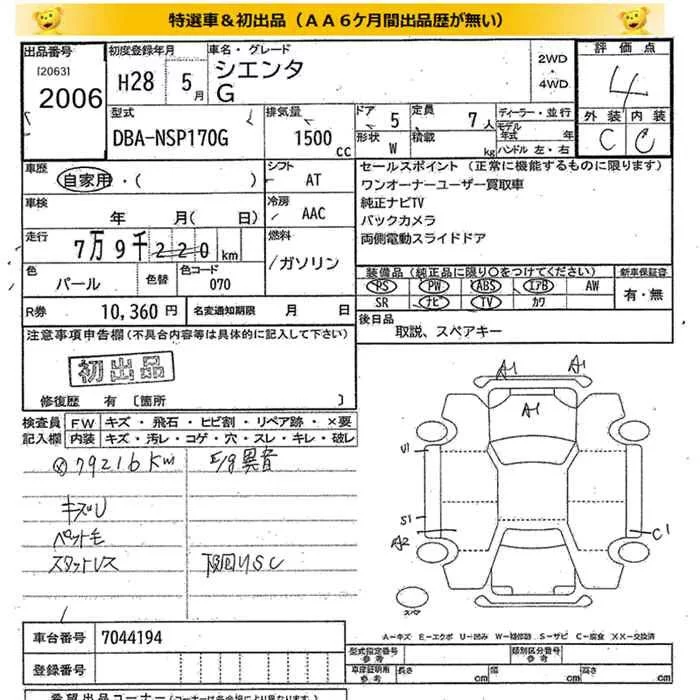 特選車＆初出品（ＡＡ６ケ月間出品歴が無い）
出品番号
[2063]
2006
初度登録年月
H28 5月
車名・グレード
シエンタ
G
2WD
・
4WD
評価点
4
外装 内装
C C
型式
DBA-NSP170G
排気量
1500 cc
ドア 5
定員 7人
形状 W
積載 kg
ディーラー・並行
モデル年式 年
ハンドル 左・右
車歴
自家用・( )
シフト
AT
車検
年 月( 日)
冷房
AAC
走行
7万9千220km
燃料
ガソリン
色
パール
色替
色コード
070
R券 10,360円
名変通知期限 月 日
セールスポイント（正常に機能するものに限ります）
ワンオーナーユーザー買取車
純正ナビTV
バックカメラ
両側電動スライドドア
装備品（純正品に限り○をつけてください）
新車保証書
PS PW ABS エアB AW
有・無
SR ナビ TV カワ
後日品
取説、スペアキー
注意事項申告欄(不具合内容等は具体的に記入して下さい)
初出品
修復歴 有〔箇所 〕
検査員記入欄
FW キズ・飛石・ヒビ割・リペア跡・×要
内装 キズ・汚レ・コゲ・穴・スレ・キレ・破レ
79216Km E/g異音
キズU
ペット毛
スタットレス 下回りSC
A1 A1
A1
U1
S1
A2
C1
スペア
A－キズ E－エクボ U－凹み W－補修跡 S－サビ C－腐食 XX－交換済
車台番号 7044194
登録番号
型式指定番号
参考
類別区分番号
参考
車庫証明用
参考
長さ cm 幅 cm 高さ cm